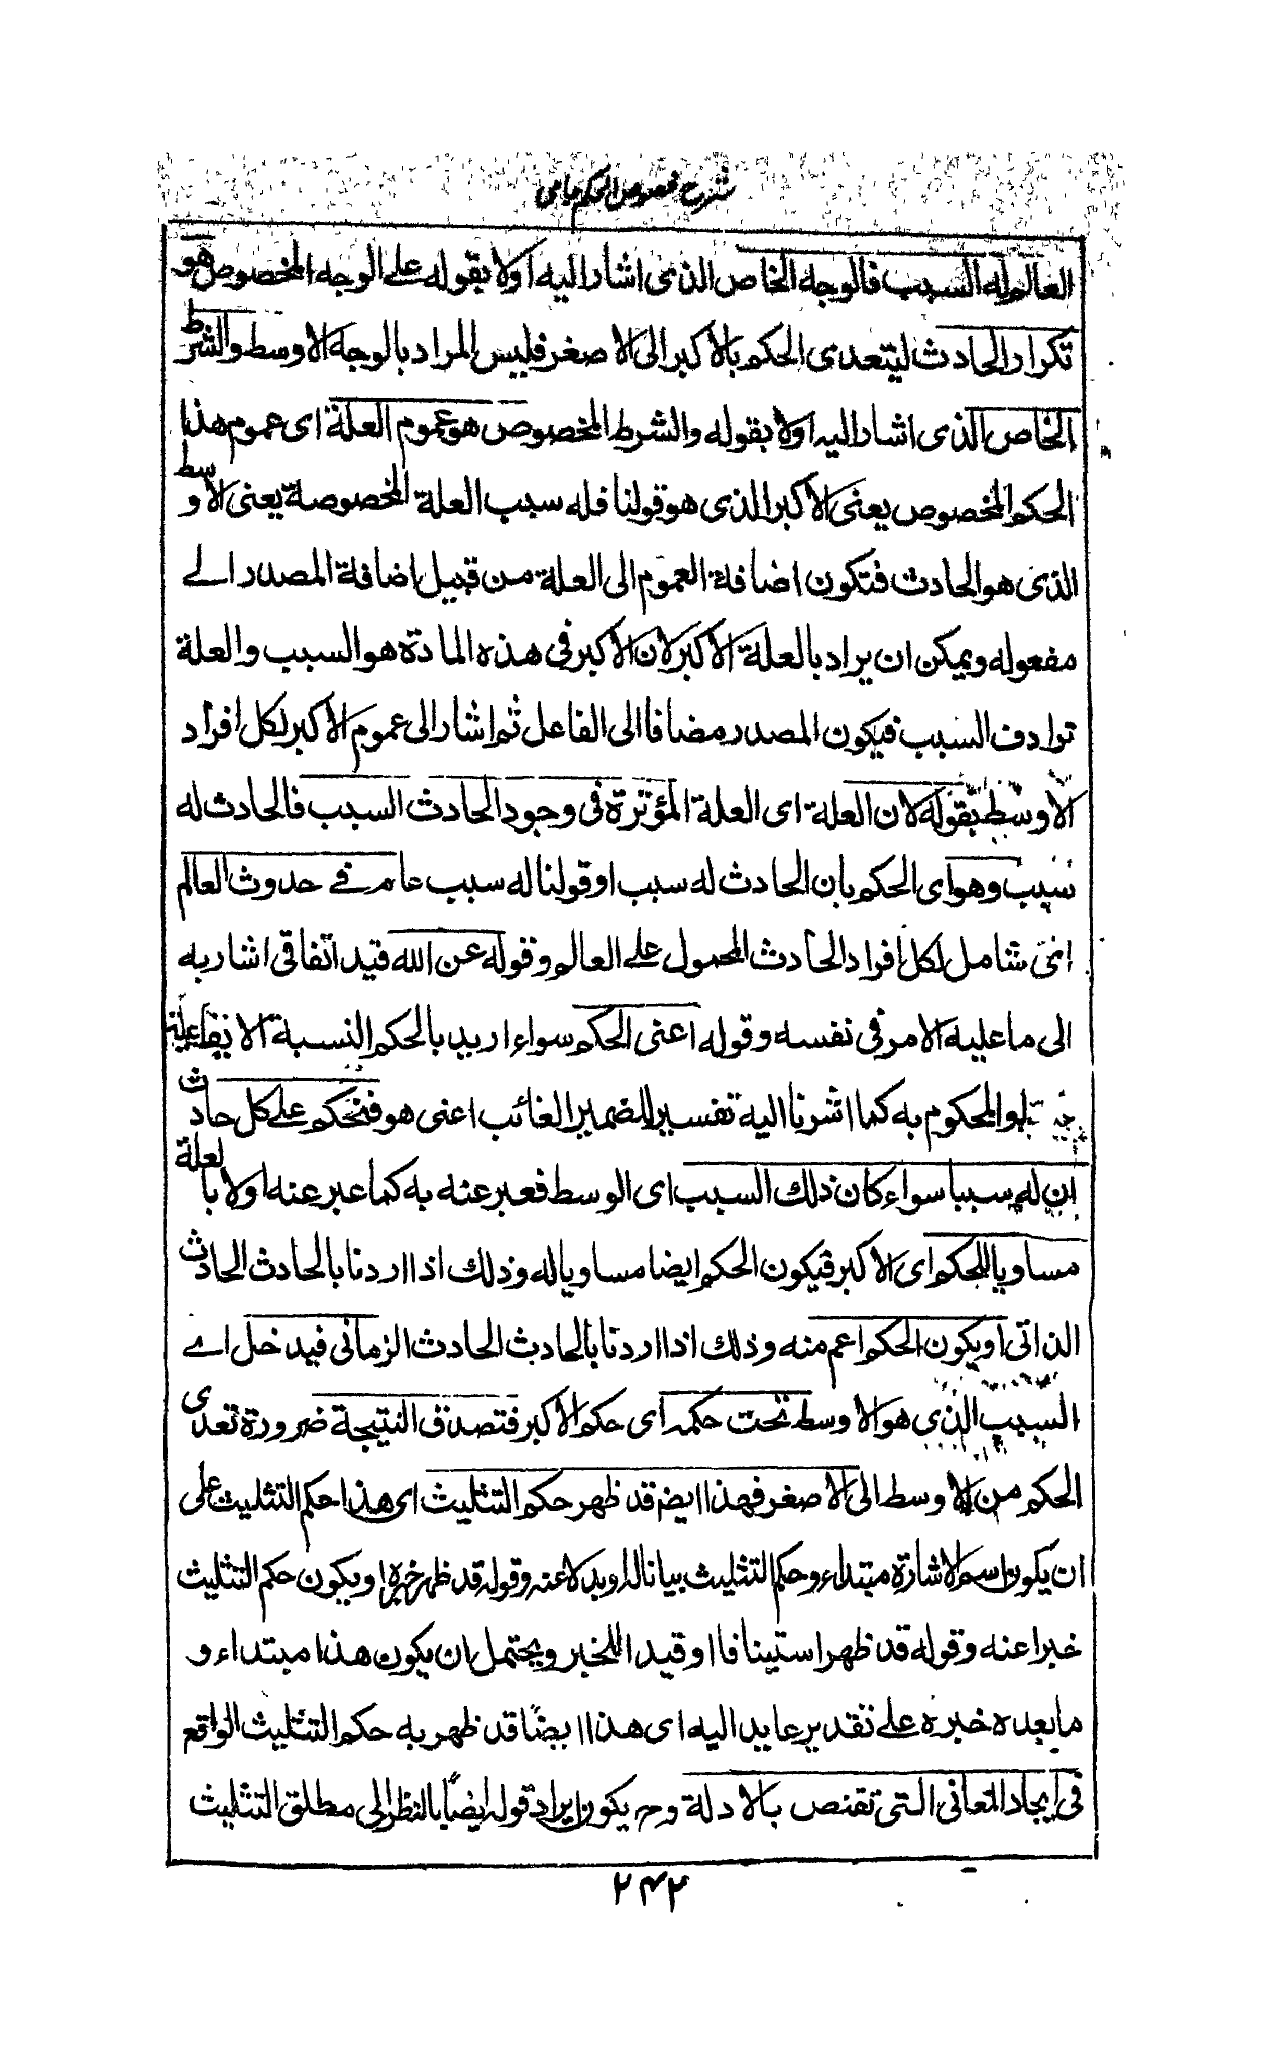 شرح فصوص الحكم جامى
العالم له السبب فالوجه الخاص الذى اشار اليه اولا بقوله على الوجه المخصوص هو
تكرار الحادث ليتعدى الحكم بالاكبر الى الاصغر فليس المراد بالوجه الاوسط والشرط
الخاص الذى اشار اليه اولا بقوله والشرط المخصوص هو عموم العلة اى عموم هذا
الحكم المخصوص يعنى الاكبر الذى هو قولنا فله سبب العلة المخصوصة يعنى الاوسط
الذى هو الحادث فتكون اضافة العموم الى العلة من قبيل اضافة المصدر الے
مفعوله ويمكن ان يراد بالعلة الاكبر لان الاكبر فى هذه المادة هو السبب والعلة
ترادف السبب فيكون المصدر مضافا الى الفاعل ثم اشار الى عموم الاكبر لكل افراد
الاوسط بقوله لان العلة اى العلة المؤثرة فى وجود الحادث السبب فالحادث له
سبب وهو اى الحكم بان الحادث له سبب او قولنا له سبب عام فے حدوث العالم
اى شامل لكل افراد الحادث المحمول علے العالم وقوله عن الله قيد اتفاقى اشار به
الى ما عليه الامر فى نفسه وقوله اعنى الحكم سواء اريد بالحكم النسبة الايقاعية
او المحكوم به كما اشرنا اليه تفسير للضمير الغائب اعنى هو فنحكم علے كل حادث
ان له سببا سواء كان ذلك السبب اى الوسط فعبر عنه به كما عبر عنه اولا بالعلة
مساويا للحكم اى الاكبر فيكون الحكم ايضا مساويا له وذلك اذا اردنا بالحادث الحادث
الذاتى او يكون الحكم اعم منه وذلك اذا اردنا بالحادث الحادث الزمانى فيدخل اے
السبب الذى هو الاوسط تحت حكمه اى حكم الاكبر فتصدق النتيجة ضرورة تعدى
الحكم من الاوسط الى الاصغر فهذا ايضا قد ظهر حكم التثليث اى هذا حكم التثليث على
ان يكون اسم الاشارة مبتداء وحكم التثليث بيانا له او بدلا عنه وقوله قد ظهر خبره او يكون حكم التثليث
خبرا عنه وقوله قد ظهر استينافا او قيدا للخبر ويحتمل ان يكون هذا مبتداء و
ما بعده خبره علے تقدير عايد اليه اى هذا ايضًا قد ظهر به حكم التثليث الواقع
فى ايجاد المعانى التى تقنص بالادلة وح يكون ايراد قوله ايضًا بالنظر الى مطلق التثليث
۲۴۲